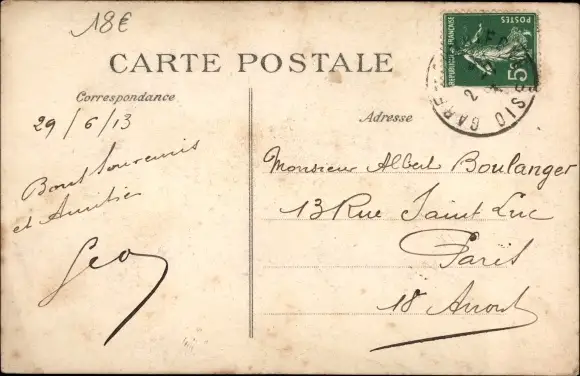 18€
CARTE POSTALE
Correspondance
29/6/13
Bons Souvenirs
et Amitiés
Geo
Adresse
Monsieur Albert Boulanger
13 Rue Saint Luc
Paris
18 Arrondt
REPUBLIQUE FRANÇAISE
POSTES
5c
GARE
OISE